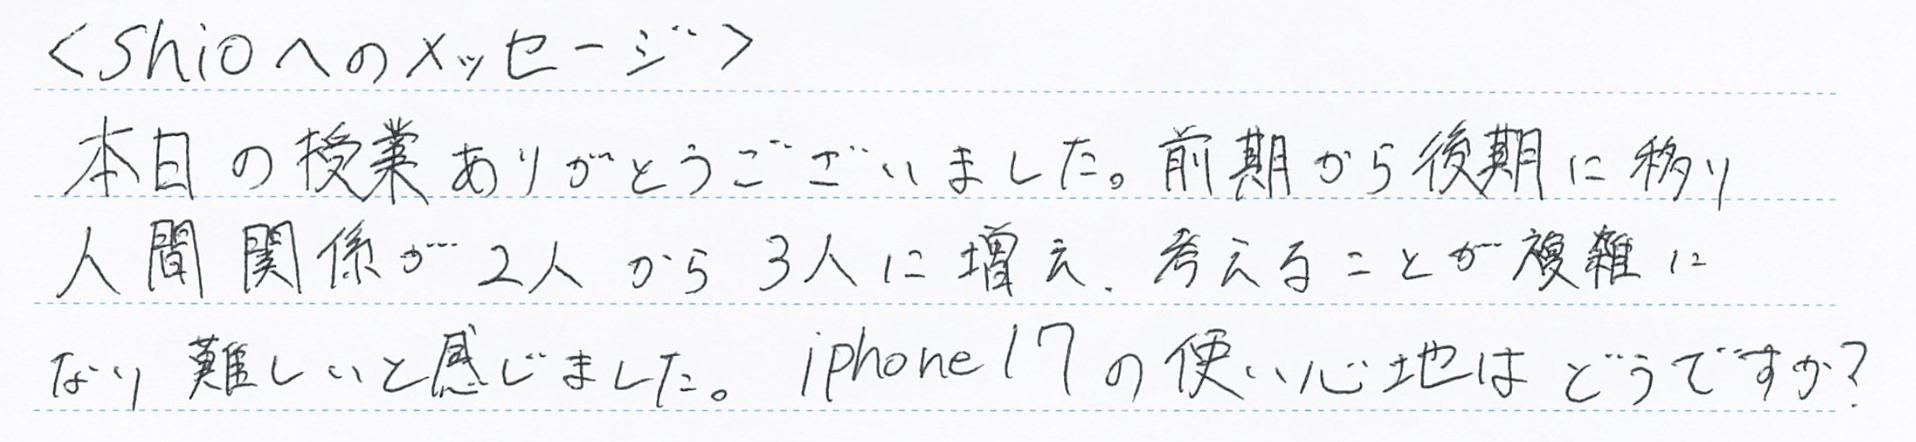 <Shioへのメッセージ>
本日の授業ありがとうございました。前期から後期に移り
人間関係が2人から3人に増え、考えることが複雑に
なり難しいと感じました。iphone17の使い心地はどうですか?